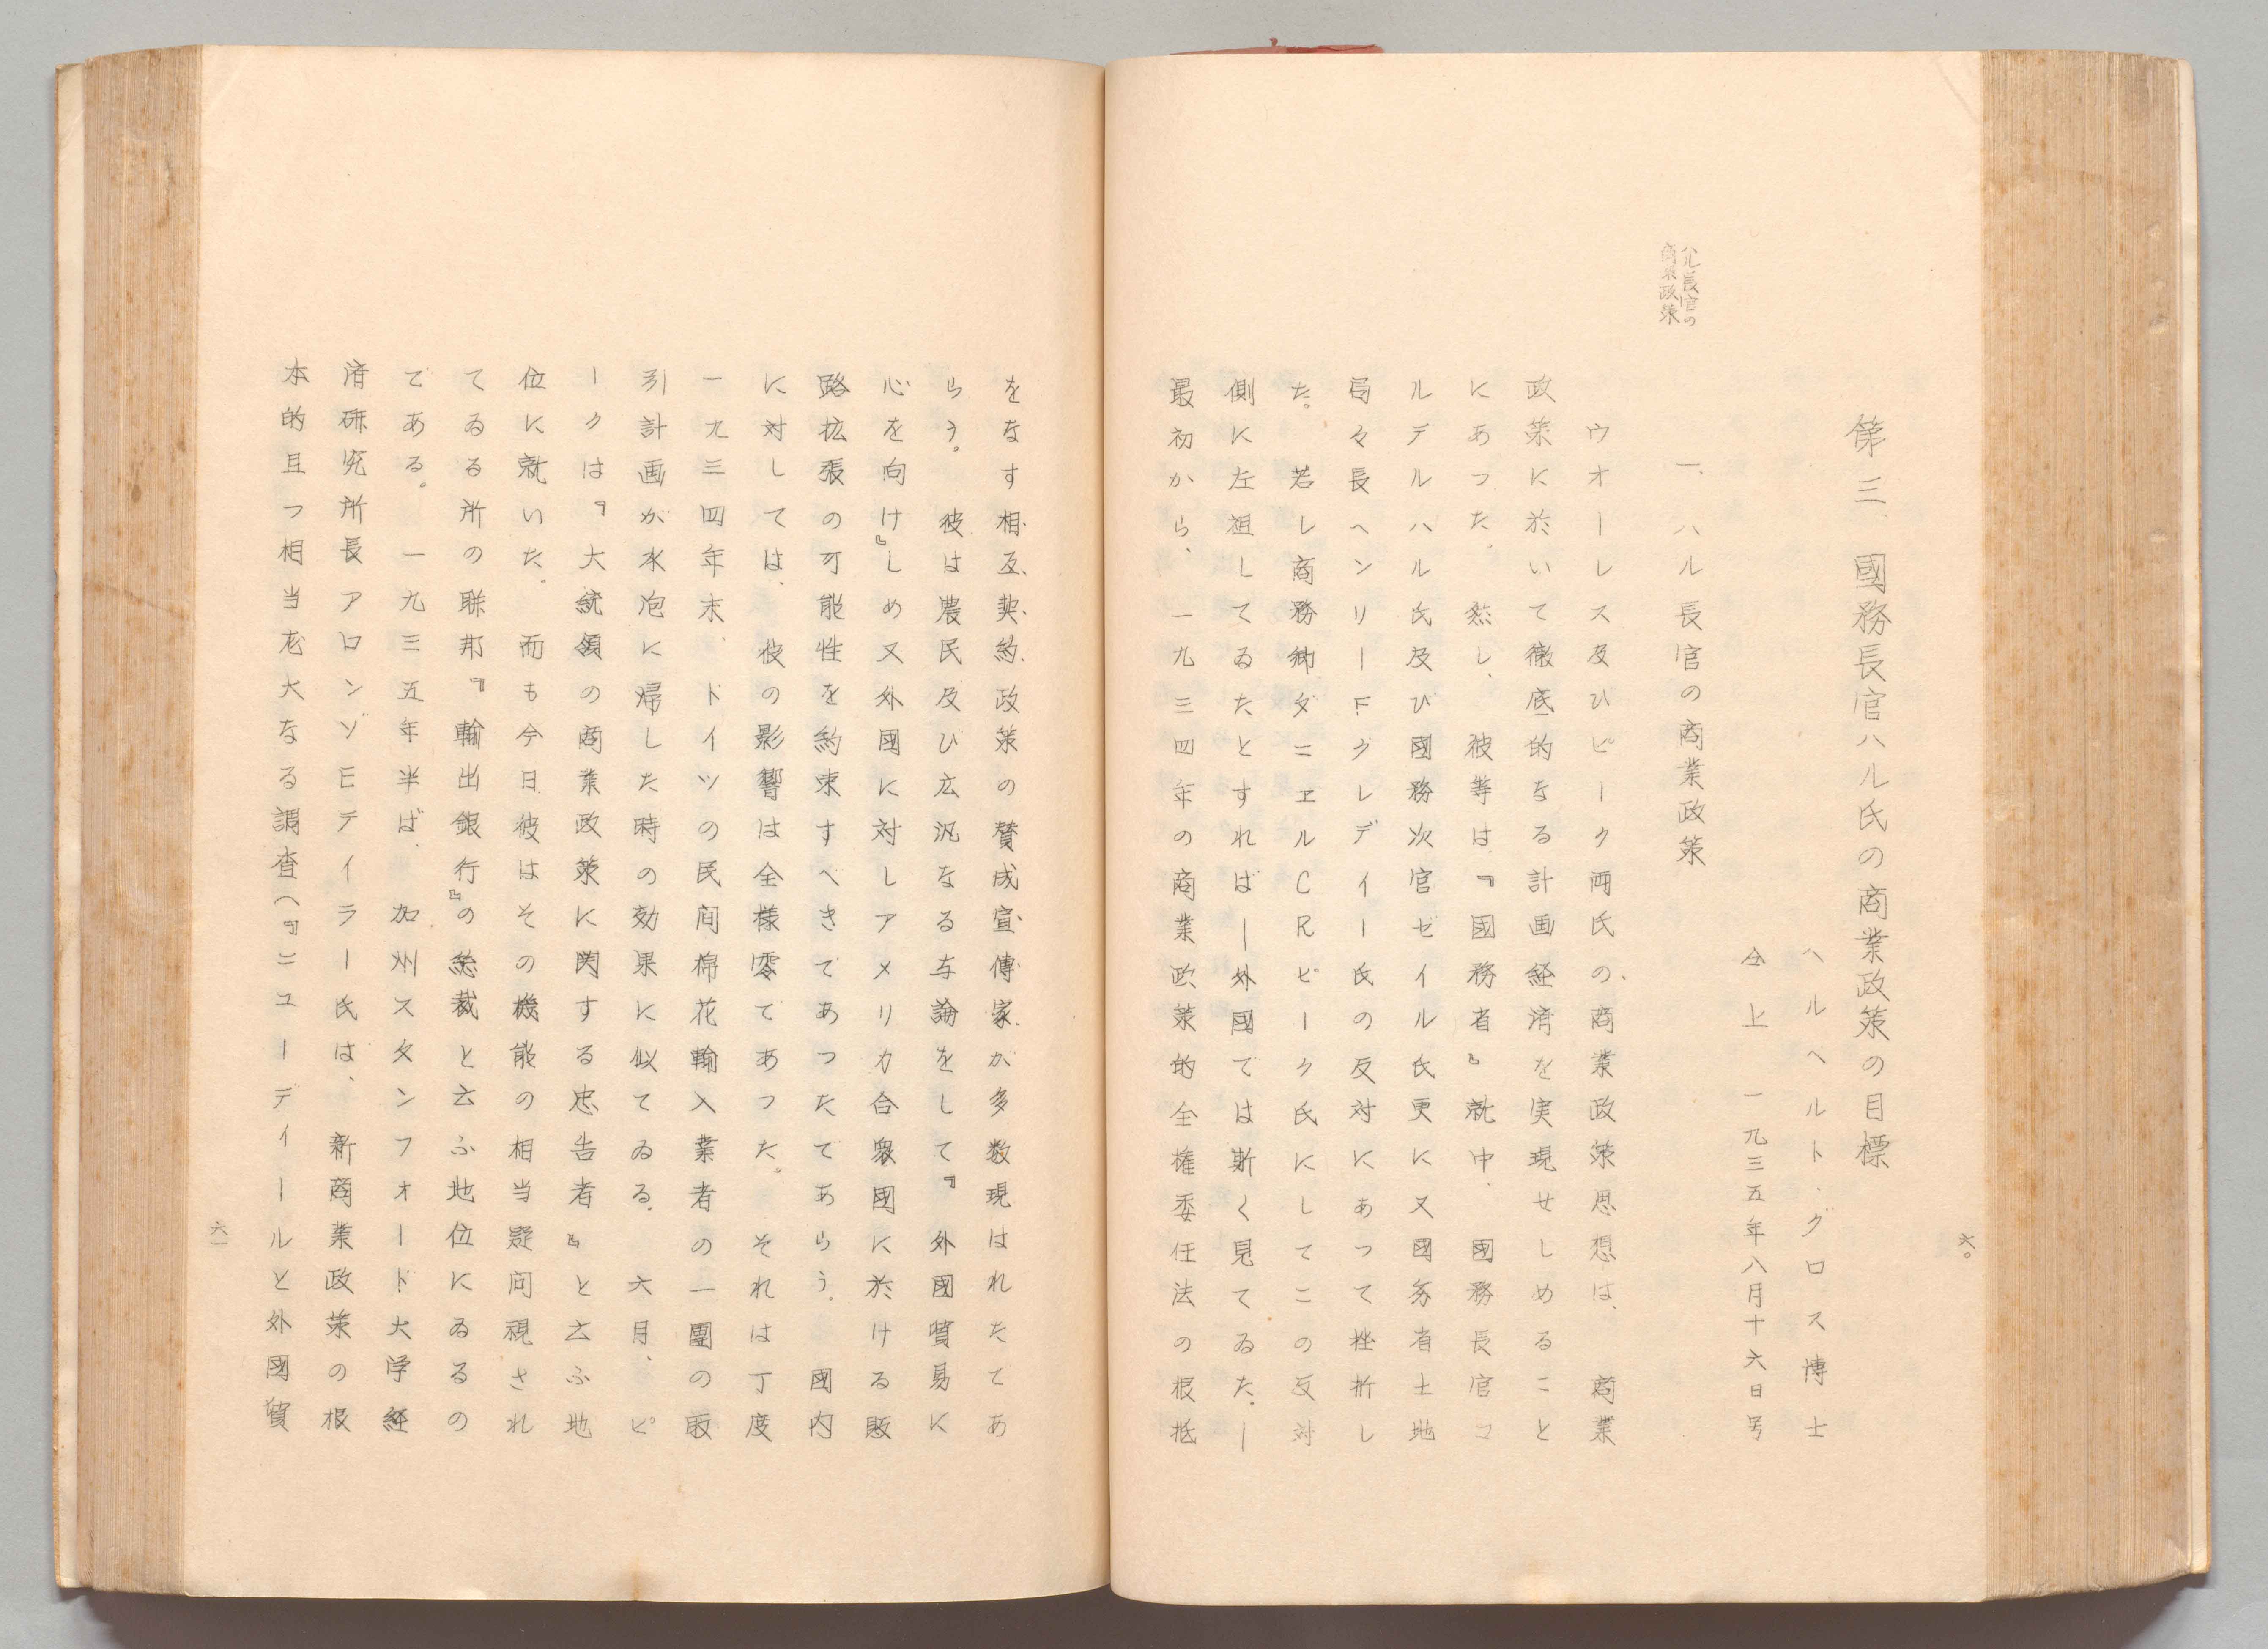 六〇
第三、國務長官ハル氏の商業政策の目標
ヘルヘルト・グロス博士
仝上　一九三五年八月十六日号
ハル長官の
商業政策
一、ハル長官の商業政策
ウオーレス及びピーク両氏の、商業政策思想は、商業
政策に於いて徹底的なる計画経済を実現せしめること
にあつた。然し、彼等は、『國務省』就中、國務長官コ
ルデルハル氏及び國務次官セイル氏更に又國务省土地
局々長ヘンリーF.グレデイー氏の反対にあつて挫折し
た。若し商務卿ダニエルCRピーク氏にしてこの反対
側に左祖してゐたとすれば―外國では斯く見てゐた。―
最初から、一九三四年の商業政策的全権委任法の根抵
をなす相互契約政策の賛成宣傳家が多数現はれたてあ
らう。彼は農民及ひ広汎なる与論をして『外國貿易に
心を向け』しめ又外國に対しアメリカ合衆國に於ける販
路拡張の可能性を約束すへきであつたてあらう。國内
に対しては、彼の影響は全様零てあつた。それは丁度
一九三四年末、ドイツの民间棉花輸入業者の一團の取
引計画が水泡に帰した時の効果に似てゐる。六月、ピ
ークは『大統領の商業政策に関する忠告者』と云ふ地
位に就いた。而も今日彼はその機能の相当疑问視され
てゐる所の聯邦『輸出銀行』の総裁と云ふ地位にゐるの
である。一九三五年半ば、加州スタンフオード大学経
済研究所長アロンゾEテイラー氏は、新商業政策の根
本的且つ相当尨大なる調査（『ニユーディールと外國貿
六一